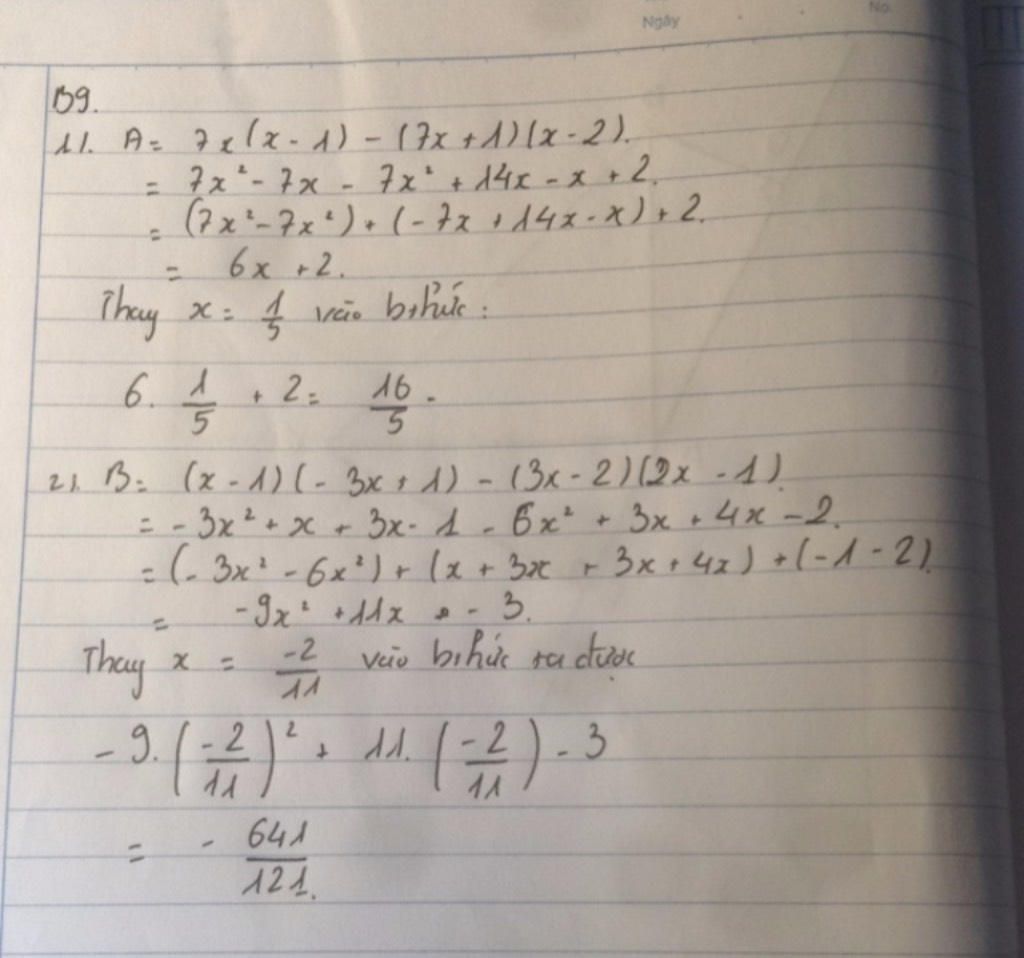 Ngày
No.
B9.
1). A = 7x(x - 1) - (7x + 1)(x - 2).
= 7x² - 7x - 7x² + 14x - x + 2.
= (7x² - 7x²) + (-7x + 14x - x) + 2.
= 6x + 2.
Thay x = 1/5 vào b.thức:
6. 1/5 + 2 = 16/5.
2). B = (x - 1)(-3x + 1) - (3x - 2)(2x - 1).
= -3x² + x + 3x - 1 - 6x² + 3x + 4x - 2.
= (-3x² - 6x²) + (x + 3x + 3x + 4x) + (-1 - 2).
= -9x² + 11x - 3.
Thay x = -2/11 vào b.thức ta được
-9. (-2/11)² + 11. (-2/11) - 3
= - 641/121.